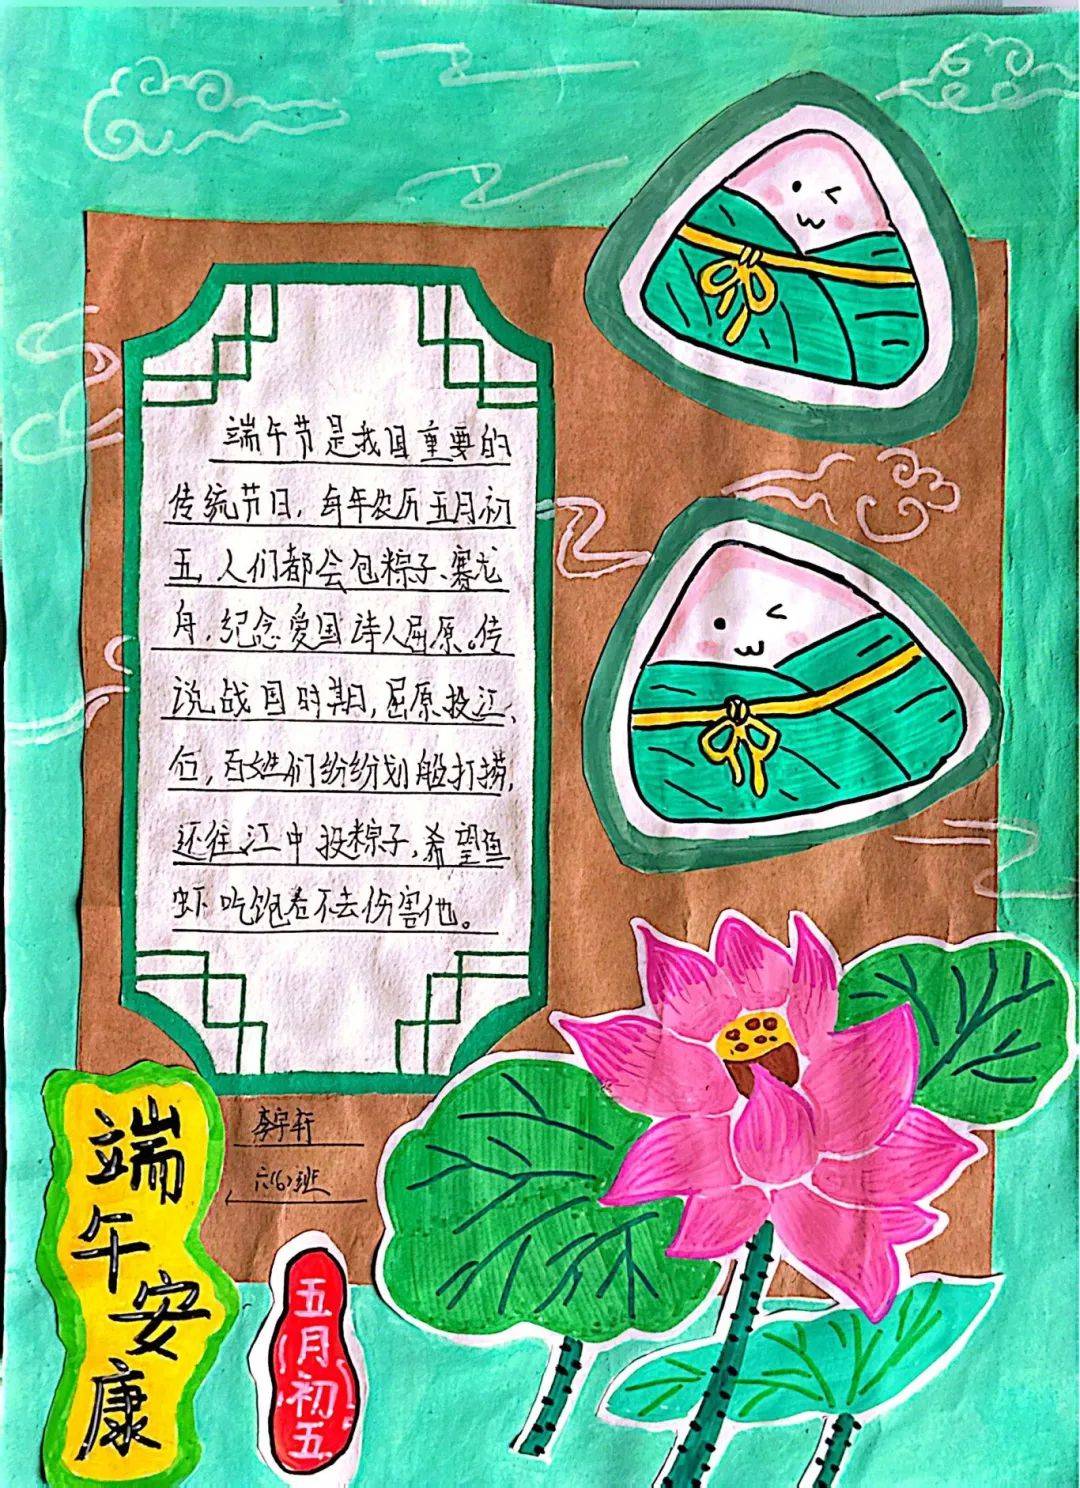 端午节是我国重要的
传统节日，每年农历五月初
五，人们都会包粽子、赛龙
舟，纪念爱国诗人屈原。传
说战国时期，屈原投江
后，百姓们纷纷划船打捞，
还往江中投粽子，希望鱼
虾吃饱后不去伤害他。
李宇轩
六(6)班
端午安康
五月初五